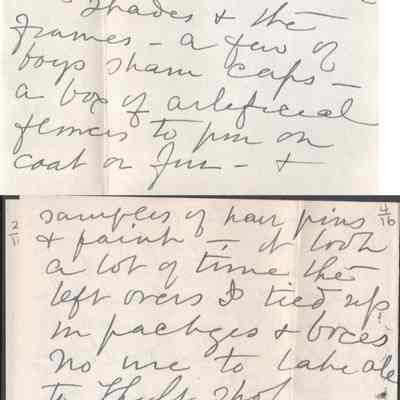 Shades & the
frames – a few of
boys sham caps –
a box of arteficial
flowers to pin on
coat or fur – &
samples of hair pins
& paint – it took
a lot of time the
left overs I tied up
in packges & boxes
No use to take all
to